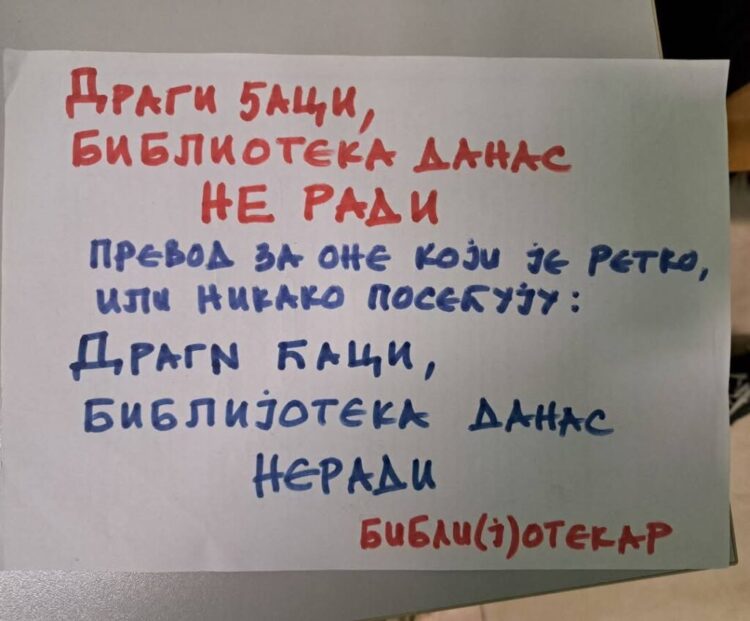 Драги ђаци,
БИБЛИОТЕКА ДАНАС
НЕ РАДИ
ПРЕВОД ЗА ОНЕ КОЈИ ЈЕ РЕТКО,
ИЛИ НИКАКО ПОСЕЋУЈУ:
ДРАГИ ЋАЦИ,
БИБЛИЈОТЕКА ДАНАС
НЕРАДИ
БИБЛИ(Ј)ОТЕКАР